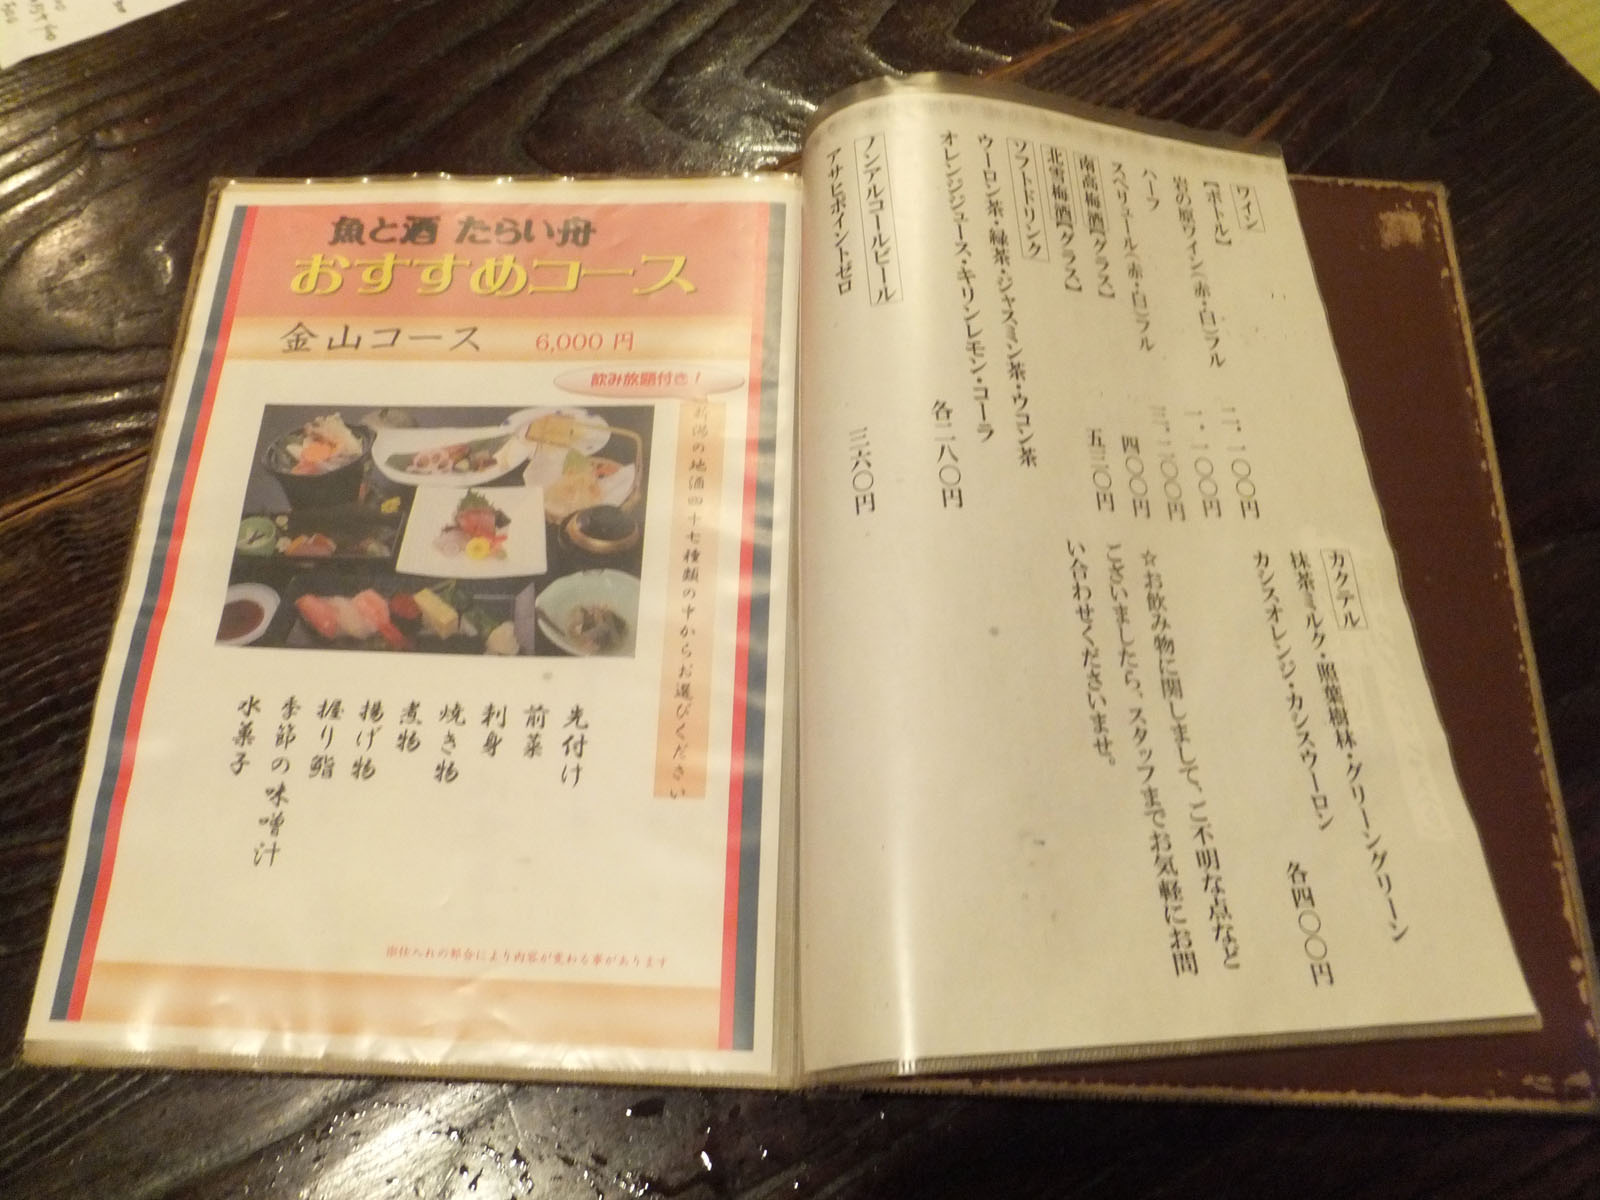 魚と酒 たらい舟
おすすめコース
金山コース 6,000 円
飲み放題付き!
新潟の地酒四十七種類の中からお選びください
先付け
前菜
刺身
焼き物
煮物
揚げ物
握り鮨
季節の味噌汁
水菓子
※仕入れの都合により内容が変わる事があります
ワイン
【ボトル】
岩の原ワイン(赤・白)フル 二、一〇〇円
ハーフ 一、一〇〇円
スペリュール(赤・白)フル 三、二〇〇円
南高梅酒【グラス】 四〇〇円
北雪梅酒【グラス】 五三〇円
ソフトドリンク
ウーロン茶・緑茶・ジャスミン茶・ウコン茶
オレンジジュース・キリンレモン・コーラ
各二八〇円
ノンアルコールビール
アサヒポイントゼロ 三六〇円
カクテル
抹茶ミルク・照葉樹林・グリーングリーン
カシスオレンジ・カシスウーロン
各四〇〇円
☆お飲み物に関しまして、ご不明な点など
ございましたら、スタッフまでお気軽にお問
い合わせくださいませ。